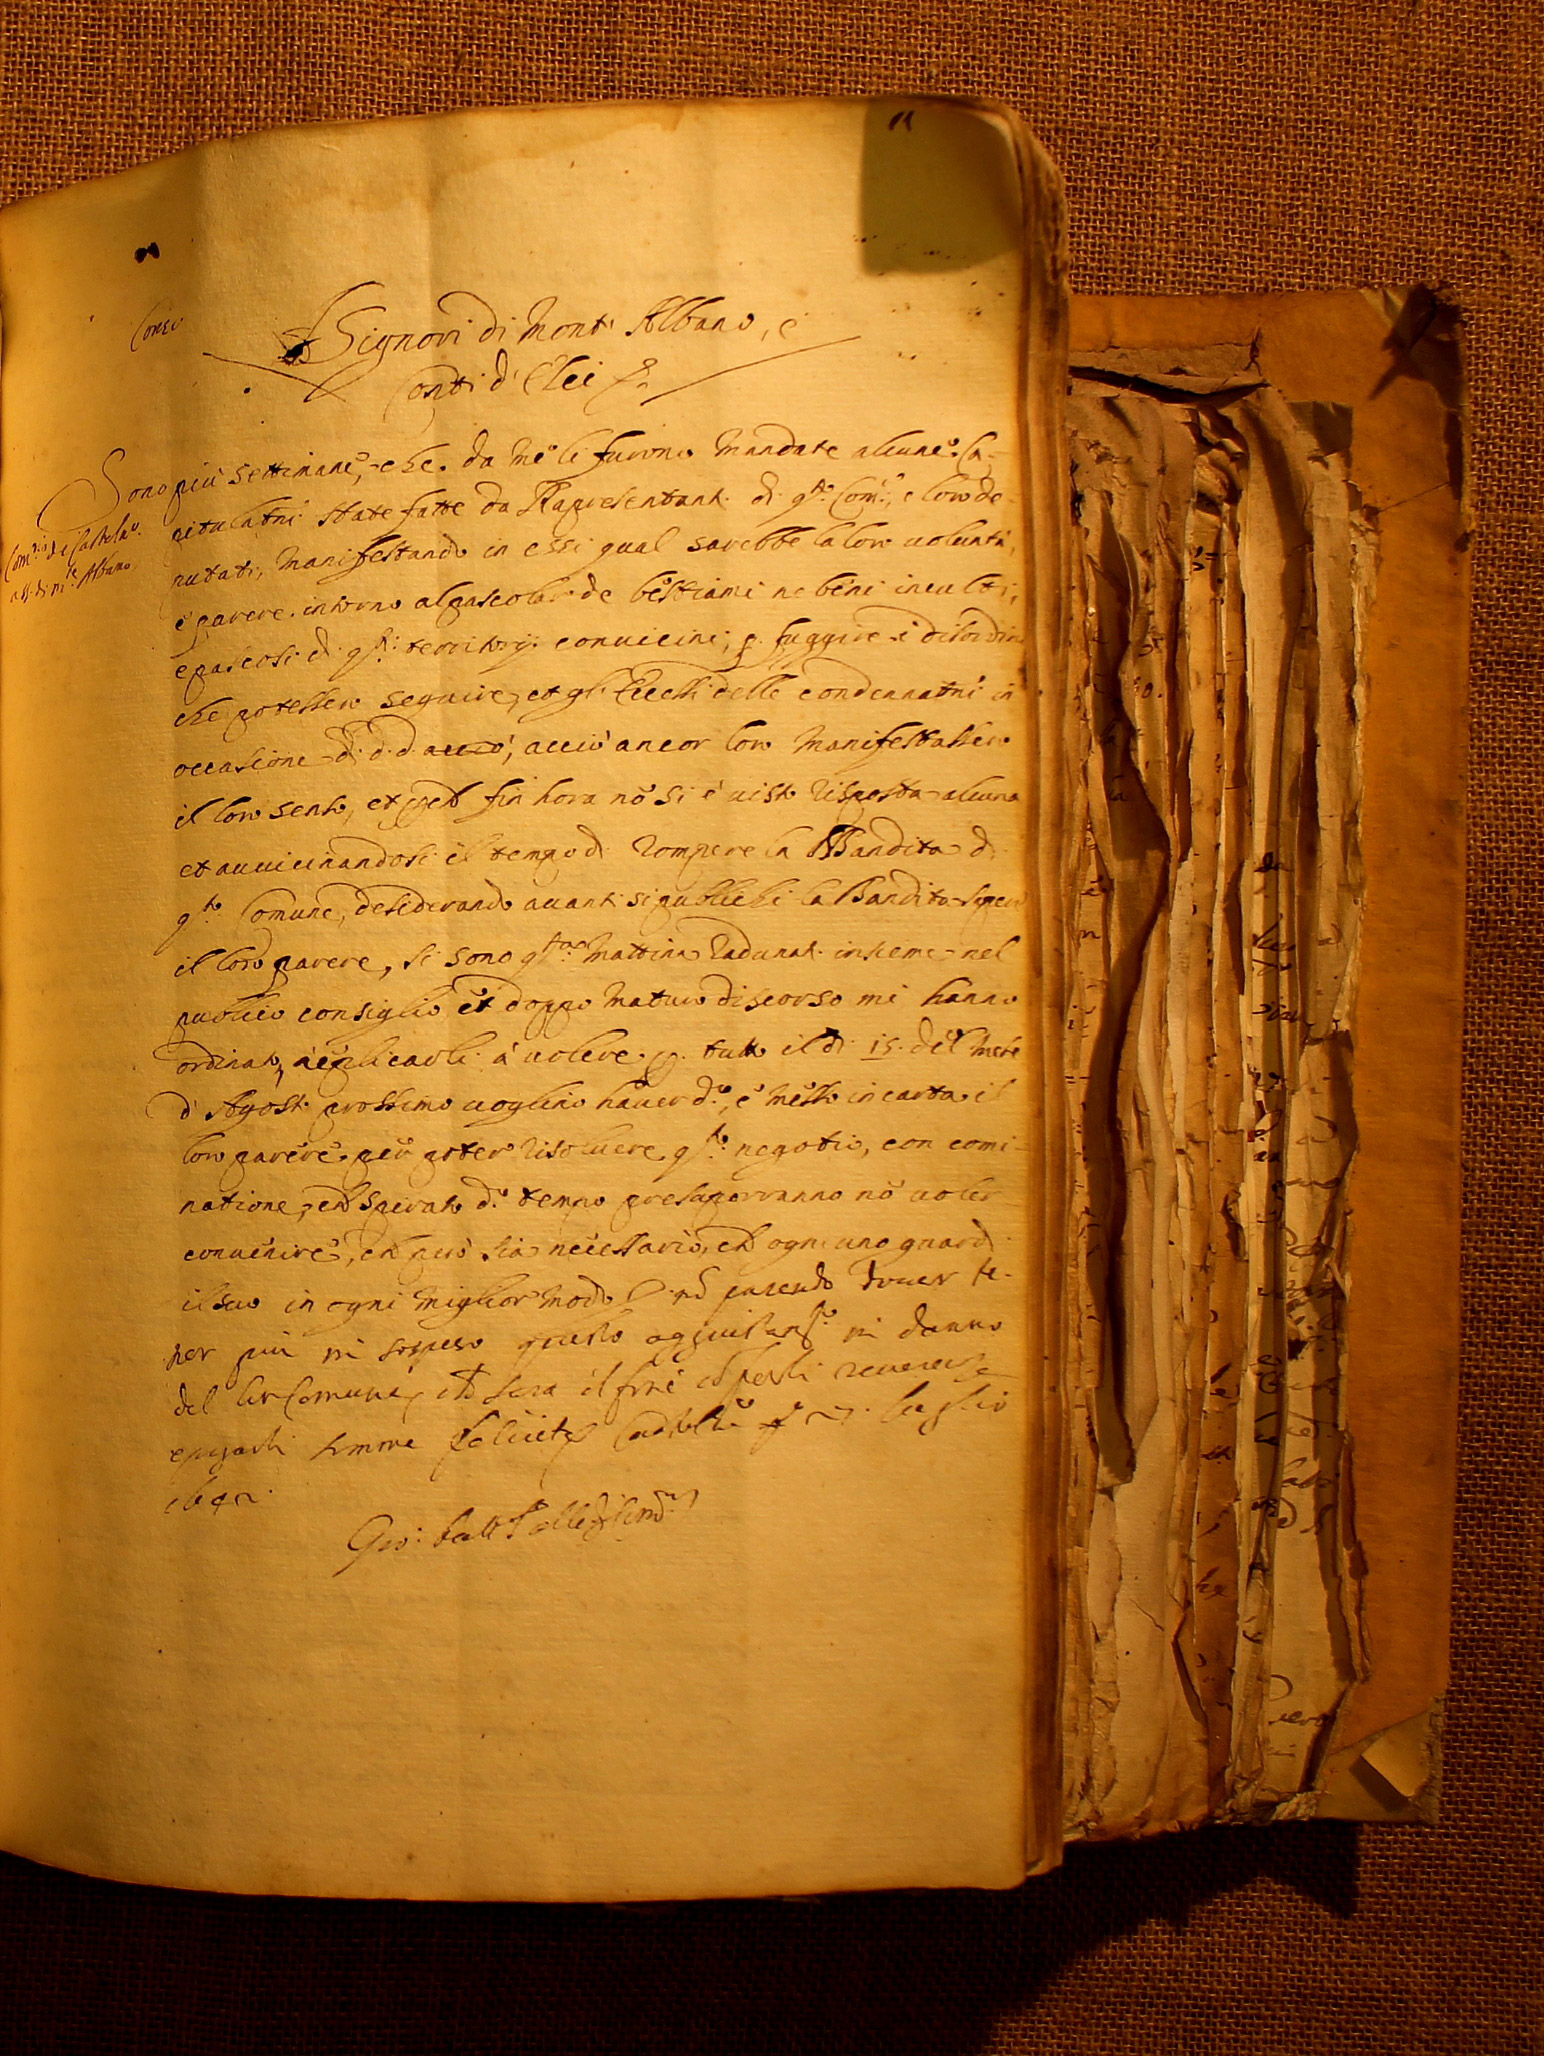 Signori di Mont' Albano, e
Conti d' Elci
Sono più settimane, che da me le furono Mandate alcune Ca-
pitulatni state fatte da Rapresentant. di q.to Com.e, e loro de-
putati, Manifestando in essi qual sarebbe la loro uoluntà,
e parere intorno al pascolar de bestiami ne beni inculti,
e pascosi di q.sti territorij conuicini, p. fuggire i disordini
che potessero seguire, et gl' Eccessi delle condennatni in
occasione di d.d. acciò, acciò ancor loro Manifestassero
il loro senso, et fin hora nõ si è uisto risposta alcuna
et auuicinandosi il tempo di rompere la Bandita di
q.to Comune, desiderando auanti si publichi la Bandita sapere
il loro parere, si sono q.sta Mattina radunati insieme nel
publico consiglio et doppo Maturo discorso mi hanno
ordinato, replicarli à uolere p. tutto il dì 15. del Mese
d' Agosto prossimo uoglino hauer d.o, e Messo in carta il
loro parere per poter risoluere q.sto negotio, con comi-
natione, che spirato d.o tempo presuporranno nõ uoler
conuenire, che però sia necessario, che ogni uno guardi
il suo in ogni miglior modo parendo douer te-
ner più in sospeso questo aggiustam.to in danno
del lor Comune, che sera il fine reuerenze
e pregarli somma felicità luglio
1642.
Gio: Batt